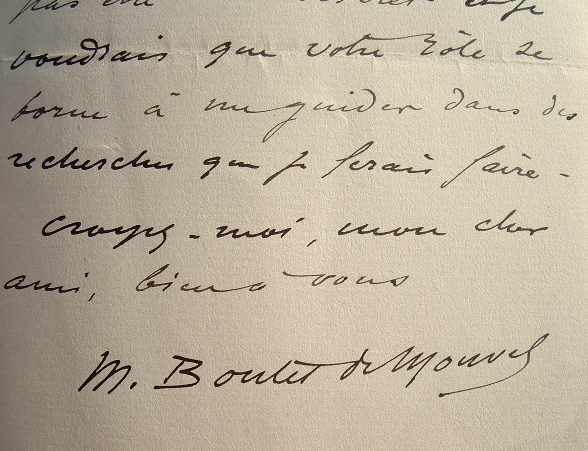 pas
voudrais que votre rôle se
borne à me guider dans des
recherches que je ferais faire -
Croyez-moi, mon cher
ami, bien à vous
M. Boutet de Monvel